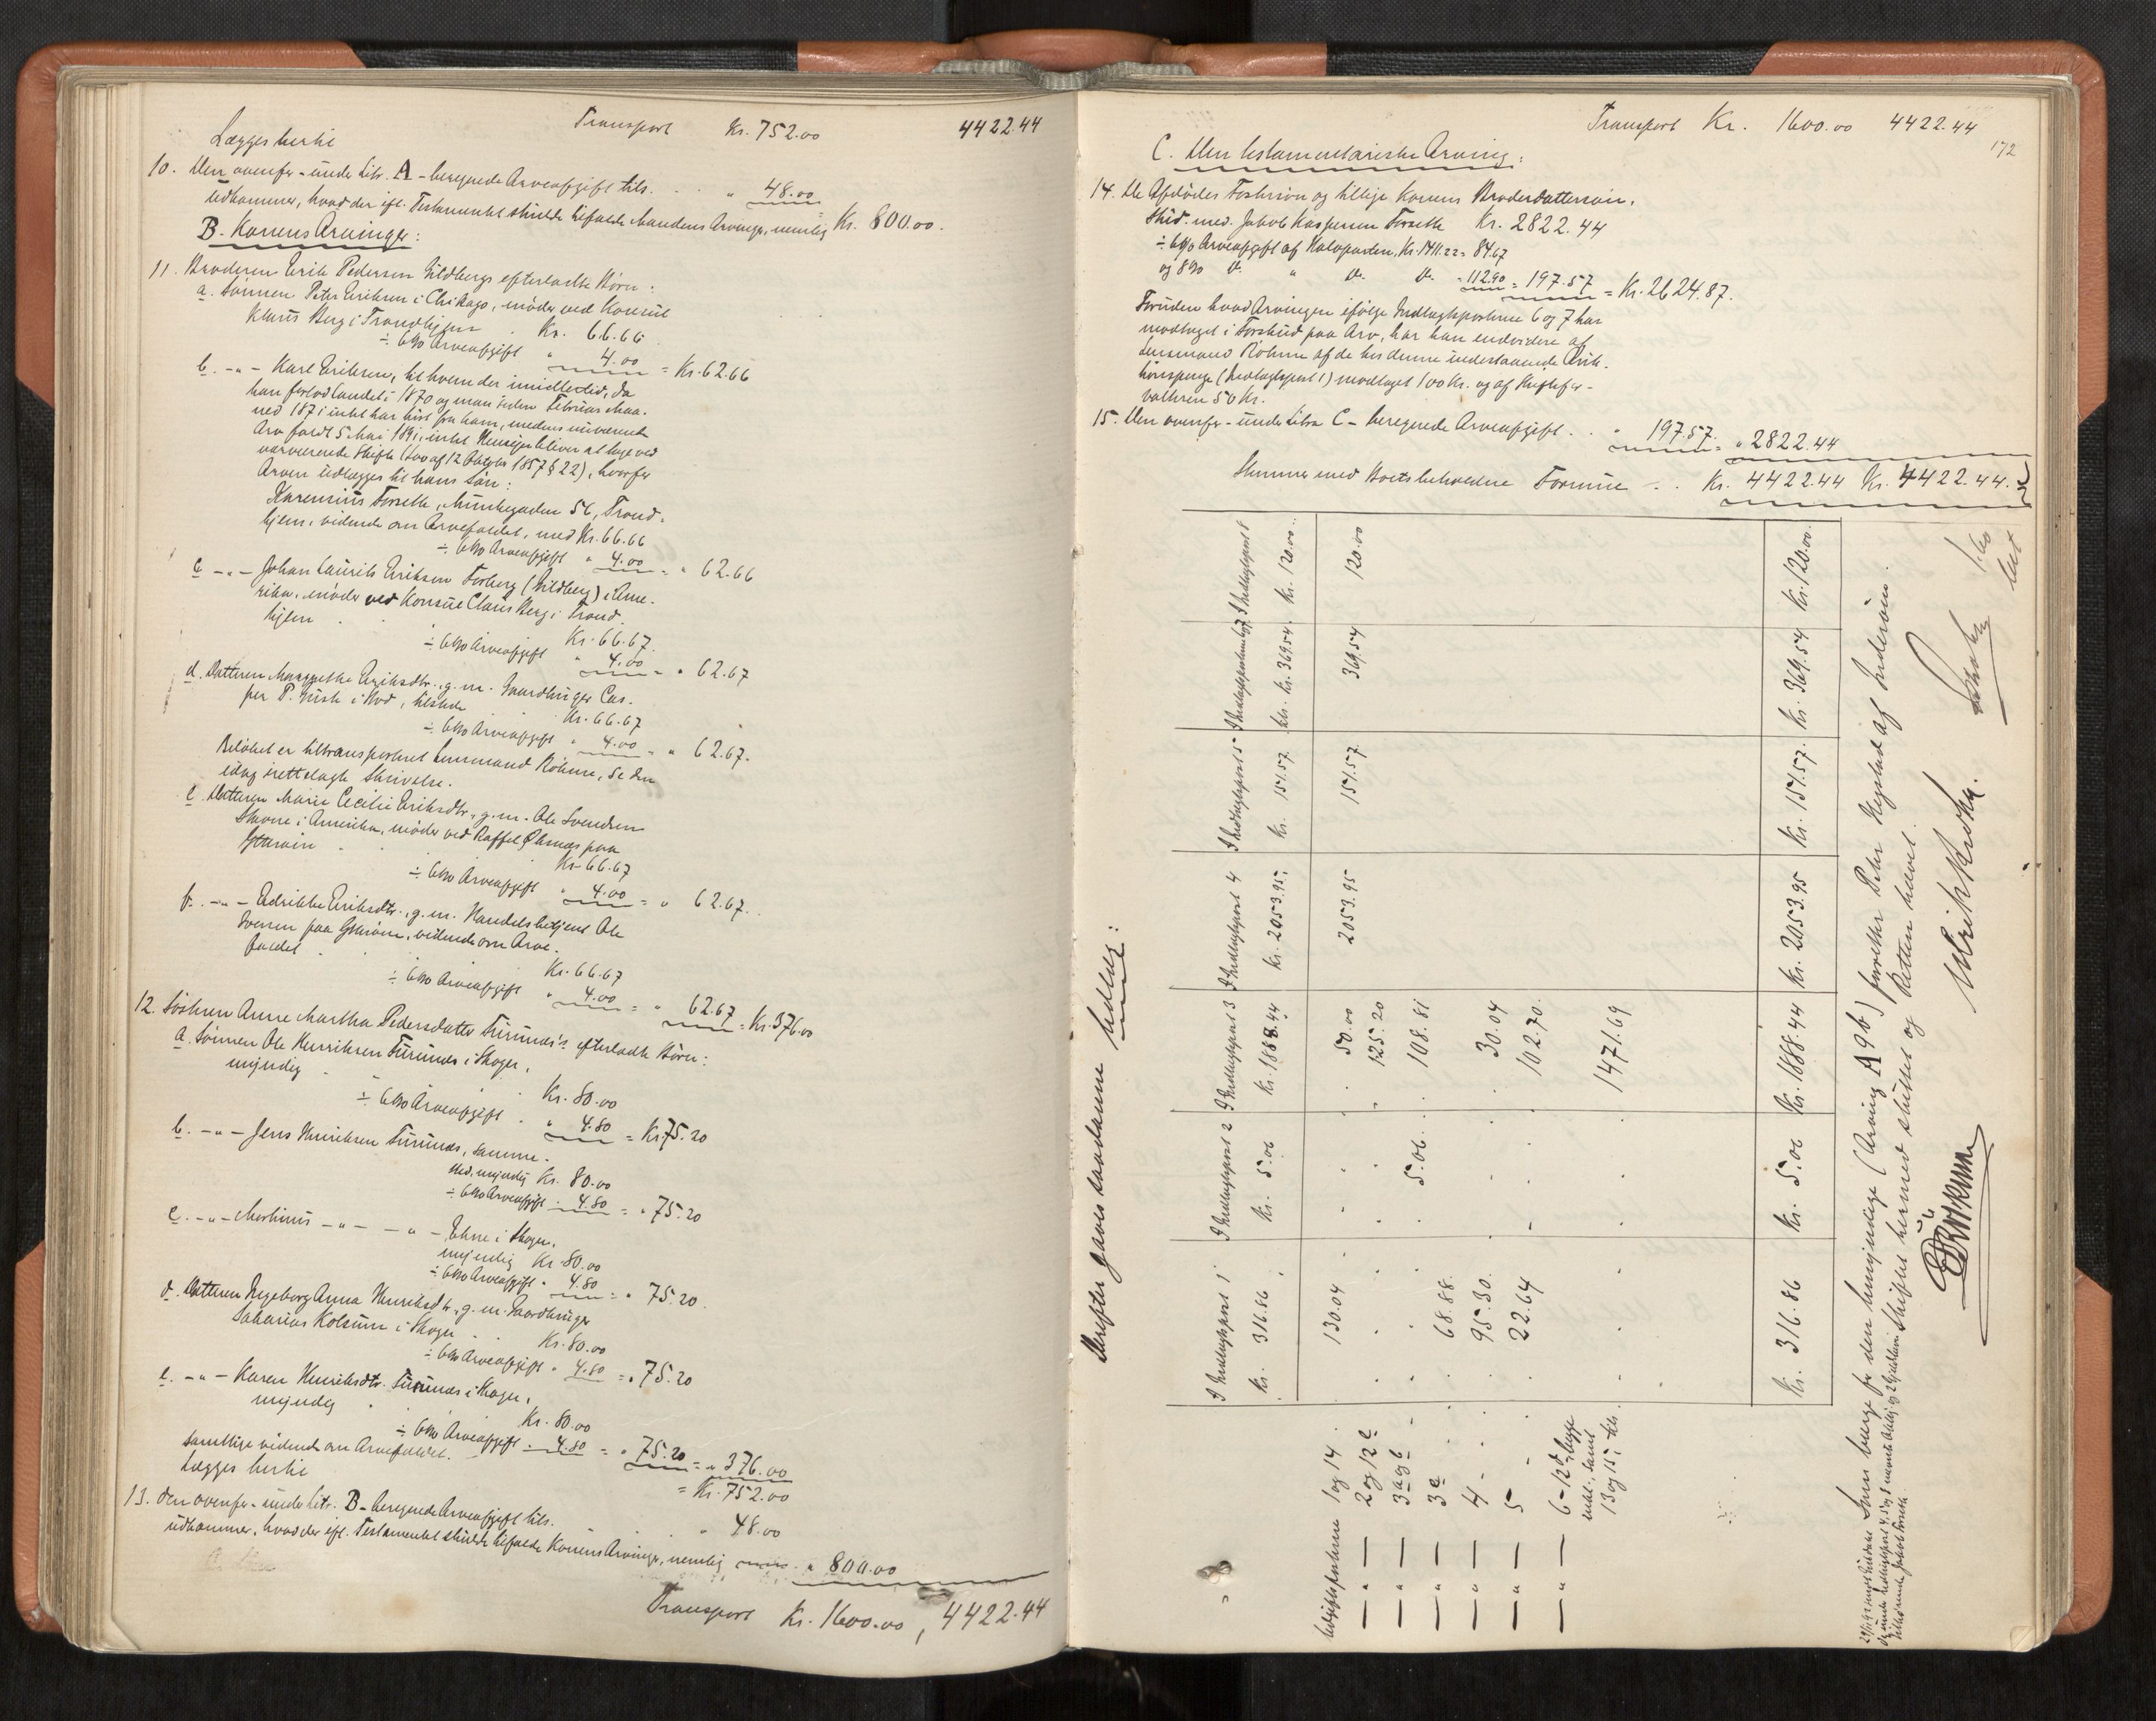 Transport Kr. 752.00 4422.44
Lægges hertil
10. Den ovenfor under Litr. A - beregnede Arveafgift tils. . . " 48.00
udkommer, hvad der ifl. Testamentet skulde tilfalde Mandens Arvinger, nemlig Kr. 800.00.
B. Konens Arvinger:
11. Broderen Erik Pedersen Gildbergs efterladte Børn:
a. Sønnen Peter Eriksen i Chikago, møder ved Konsul
Klaus Berg i Trondhjem . Kr. 66.66
÷ 6% Arveafgift " 4.00 = Kr. 62.66
b. -"- Karl Eriksen, til hvem der imidlertid, da
han forlod Landet i 1870 og man siden Februar Maa-
ned 1871 intet har hørt fra ham, medens nuværende
Arv faldt 5 Mai 1891, intet Hensyn bliver at tage ved
nærværende Skifte (Lov af 12 Oktober 1857 § 22), hvorfor
Arven udlægges til hans Søn:
Karenius Forseth, Munkegaden 56, Trond-
hjem, vidende om Arvefaldet, med Kr. 66.66
÷ 6% Arveafgift " 4.00 = " 62.66
c -"- Johan Laurits Eriksen Forberg (Gildberg) i Ame-
rika, møder ved Konsul Claus Berg i Trond-
hjem . . Kr. 66.67
÷ 6% Arveafgift " 4.00 = " 62.67
d. Datteren Margrethe Eriksdtr. g. m. Gaardbruger Cas-
per P. , tilstede
Kr. 66.67
÷ 6% Arveafgift " 4.00 = " 62.67.
Beløbet er tiltransporteret Lensmand Röhme, se den
idag irettelagte Skrivelse.
e. Datteren Marie Cecilie Eriksdtr., g. m. Ole Svendsen
i Amerika, møder ved
Kr. 66.67
÷ 6% Arveafgift " 4.00 = " 62.67.
f. -"- Eriksdtr., g. m. Handelsbetjent Ole
, vidende om Arve-
faldet . .
Kr. 66.67
÷ 6% Arveafgift " 4.00 = " 62.67 = Kr. 376.00
12. Søsteren Anne Martha Pedersdatter Furunæs's efterladte Børn:
a. Sønnen Ole Henriksen Furunæs i Skogn,
myndig . . Kr. 80.00
÷ 6% Arveafgift . " 4.80 = Kr. 75.20
b. -"- Jens Henriksen Furunæs, samme-
sted, myndig Kr. 80.00
÷ 6% Arveafgift - 4.80 = " 75.20
c. -"- Morkinus -"- -"- Ekne i Skogn,
myndig Kr. 80.00
÷ 6% Arveafgift " 4.80 = " 75.20.
d. Datteren Ingeborg Anna Henriksdtr., g. m. Gaardbruger
Sakarias Kolsum i Skogn . Kr. 80.00
÷ 6% Arveafgift " 4.80 = " 75.20
e. -"- Karen Henriksdtr. Furunæs i Skogn,
myndig . Kr. 80.00
÷ 6% Arveafgift - 4.80 = " 75.20 = " 376.00
samtlige vidende om Arvefaldet. = Kr. 752.00
Lægges hertil
13. Den ovenfor - under Litr. B - beregnede Arveafgift tils. " 48.00
udkommer, hvad der ifl. Testamentet skulde tilfalde Konens Arvinger, nemlig " 800.00
Transport Kr. 1600.00, 4422.44
Transport Kr. 1600.00 4422.44
172
C. Den testamentariske Arving:
14. De Afdødes Fostersøn og tillige Konens Broderdattersøn,
Stud. med. Jakob Kaspersen Forseth Kr. 2822.44
÷ 6% Arveafgift af Halvparten, Kr. 1411.22 = 84.67
og 8% do. " do. do. - 112.90 = 197.57 = Kr. 2624.87.
Foruden hvad Arvingen ifølge Indlægsposterne 6 og 7 har
modtaget i Forskud paa Arv, har han endvidere af
Lensmand Röhme af de hos denne indestaaende Auk-
tionspenge (Indtægtspost 1) modtaget 100 Kr. og af Skifteforvalteren 50 Kr.
15. Den ovenfor - under Litra C - beregnede Arveafgift . . " 197.57 = " 2822.44
Stemmer med Boets beholdne Formue . . Kr. 4422.44 Kr. 4422.44.
Derefter gaves saadanne Udlæg:
I Indtægtspost 1 I Indtægtspost 2 I Indtægtspost 3 I Indtægtspost 4 I Indtægtspost 5 I Indtægtsposterne 6 og 7 I Indtægtspost 8
Kr. 316.86 Kr. 5.06 Kr. 1888.44 Kr. 2053.95 Kr. 157.57. tils. Kr. 369.54. Kr. 120.00.
Udgiftsposterne 1 og 14 . 130.04 . 50.00 2053.95 157.57 369.54 120.00
—"— 2 og 12 e . . 125.20
—"— 3 a og b . 5.06 . 108.81
—"— 3 c . 68.88
—"— 4 . 95.30. . 30.04
—"— 5 22.64 . 102.70.
—"— 6 - 12 d, begge
inkl., samt
13 og 15, tils. . . 1471.69
Kr. 316.86 Kr. 5.06 Kr. 1888.44 Kr. 2053.95 Kr. 157.57. Kr. 369.54 Kr. 120.00.
Som Værge for den umyndige (Arving A 9 b) foreslaaes Peter af Inderøen.
Skiftet hermed sluttet og Retten hævet.
Röhme